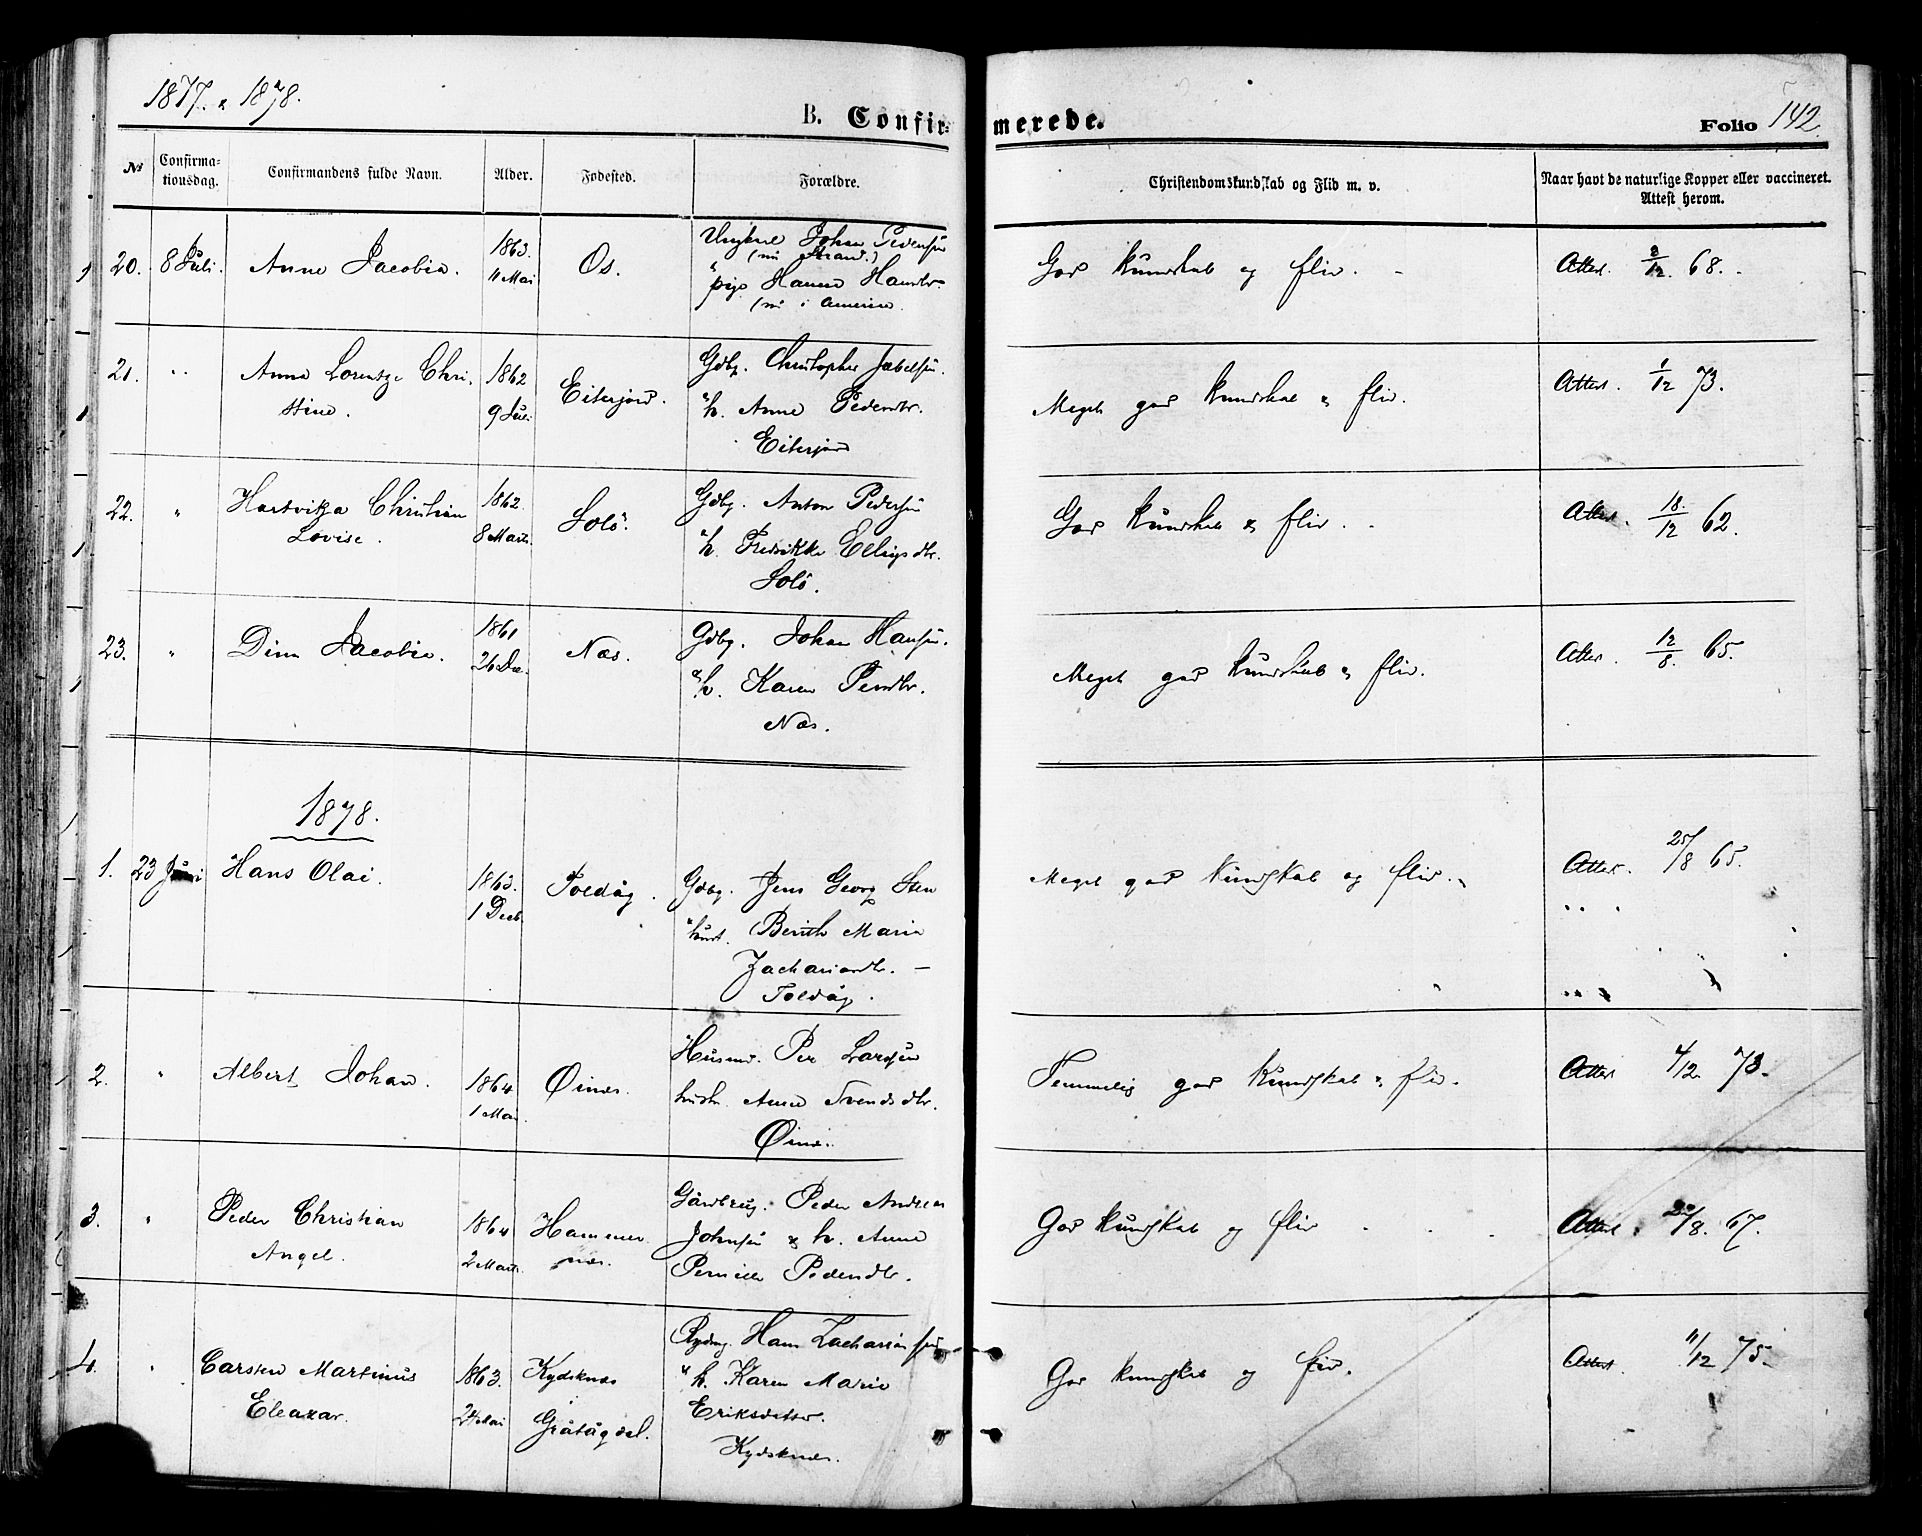 1877. & 1878.
B. Confirmerede.
Folio 142.
No
Confirma-
tionsdag.
Confirmandens fulde Navn.
Alder.
Fødested.
Forældre.
Christendomskundskab og Flid m. v.
Naar havt de naturlige Kopper eller vaccineret.
Attest herom.
20. 8 Juli. Anne Jacobia. 1863. 11 Mai Os.
Ungkarl Johan Pedersen
(nu Strand.)
pige Hanna Hansdtr.
(nu i Amerika.
God kundskab og flid. Attest. 2/12. 68.
21. " Anne Lorentze Chri-
stine. 1862 9 Juli Eiterjord.
Gdbg. Christopher Jakobsen.
& h. Anne Pedersdtr.
Eiterjord
Meget god kundskab & flid. Attest. 1/12 73.
22. " Hartvikka Christian
Lovise. 1862. 8 Marts. Solö.
Gdbg. Anton Pedersen
& h. Fredrikke Ellingsdtr.
Solö.
God kundskab & flid. Attest. 18./12 62.
23. " Dina Jacobia. 1861 26 Dec. Næs.
Gdbg. Johan Hansen.
& h. Karen Persdtr.
Næs.
Meget god kundskab & flid. Attest. 12/8. 65.
1878.
1. 23 Juni Hans Olai. 1863. 1 Decb. Toldåg.
Gdbg. Jens Georg Sten
& hust. Berith Maria
Zachariasdtr. –
Toldåg.
Meget god kundskab og flid. Attest. 25/8 65.
2. " Albert Johan. 1864 1 Mai Øinæs.
Husmd. Per Larsen
hustr. Anne Svendsdtr.
Øinæs.
Temmelig god kundskab & flid. Attest 4/12 73.
3. " Peder Christian
Angel. 1864 2 Marts. Hammer
næs.
Gårdbrug. Peder Andreas
Johnsen & h. Anne
Pernille Pedersdtr.
God kundskab og flid Attest 20/8. 67.
4. " Carsten Martinus
Eleazar. 1863. 24 Mai Kydsknæs
Gråtågdal.
Rydng. Hans Zachariassen
& h. Karen Marie
Eriksdatter.
Kydsknæs.
God kundskab og flid. Attest 11/12 75.